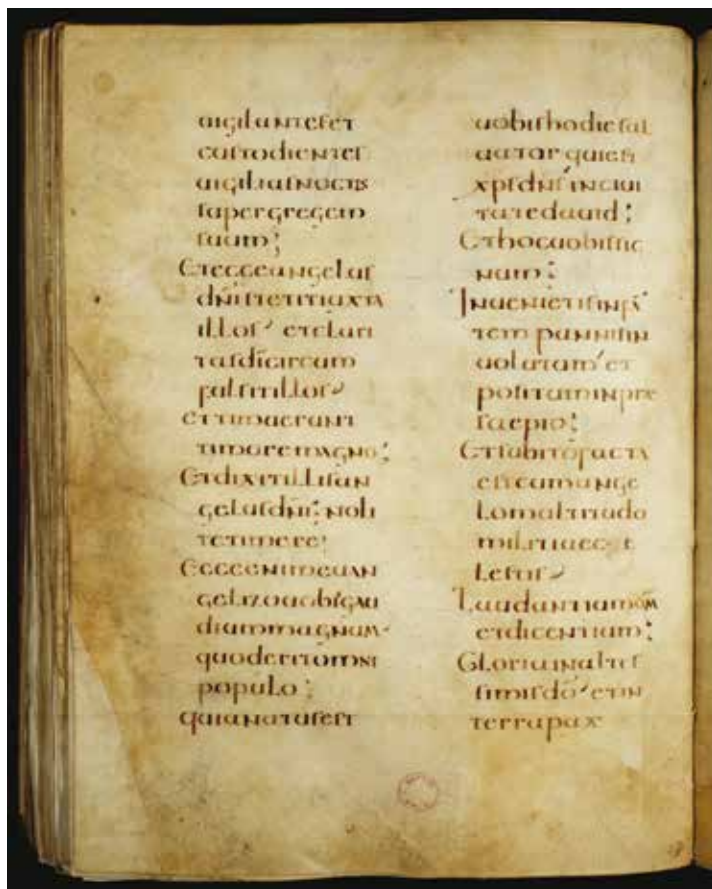 uigilantes et
custodientes
uigilias noctis
super gregem
suum;
Et ecce angelus
dñi stetit iuxta
illos et clari
tas di circum
fulsit illos
et timuerunt
timore magno;
Et dixit illis an
gelus dñi; noli
te timere;
Ecce enim euan
gelizo uobis gau
dium magnum
quod erit omni
populo;
quia natus est
uobis hodie sal
uator qui est
xps dns in ciui
tate dauid;
Et hoc uobis sig
num;
Inuenietis inf
tem pannis in
uolutum et
positum in pre
saepio;
Et subito facta
est cum ange
lo multitudo
militiae cae
lestis
Laudantium dm
et dicentium;
Gloria in altis
simis do et in
terra pax